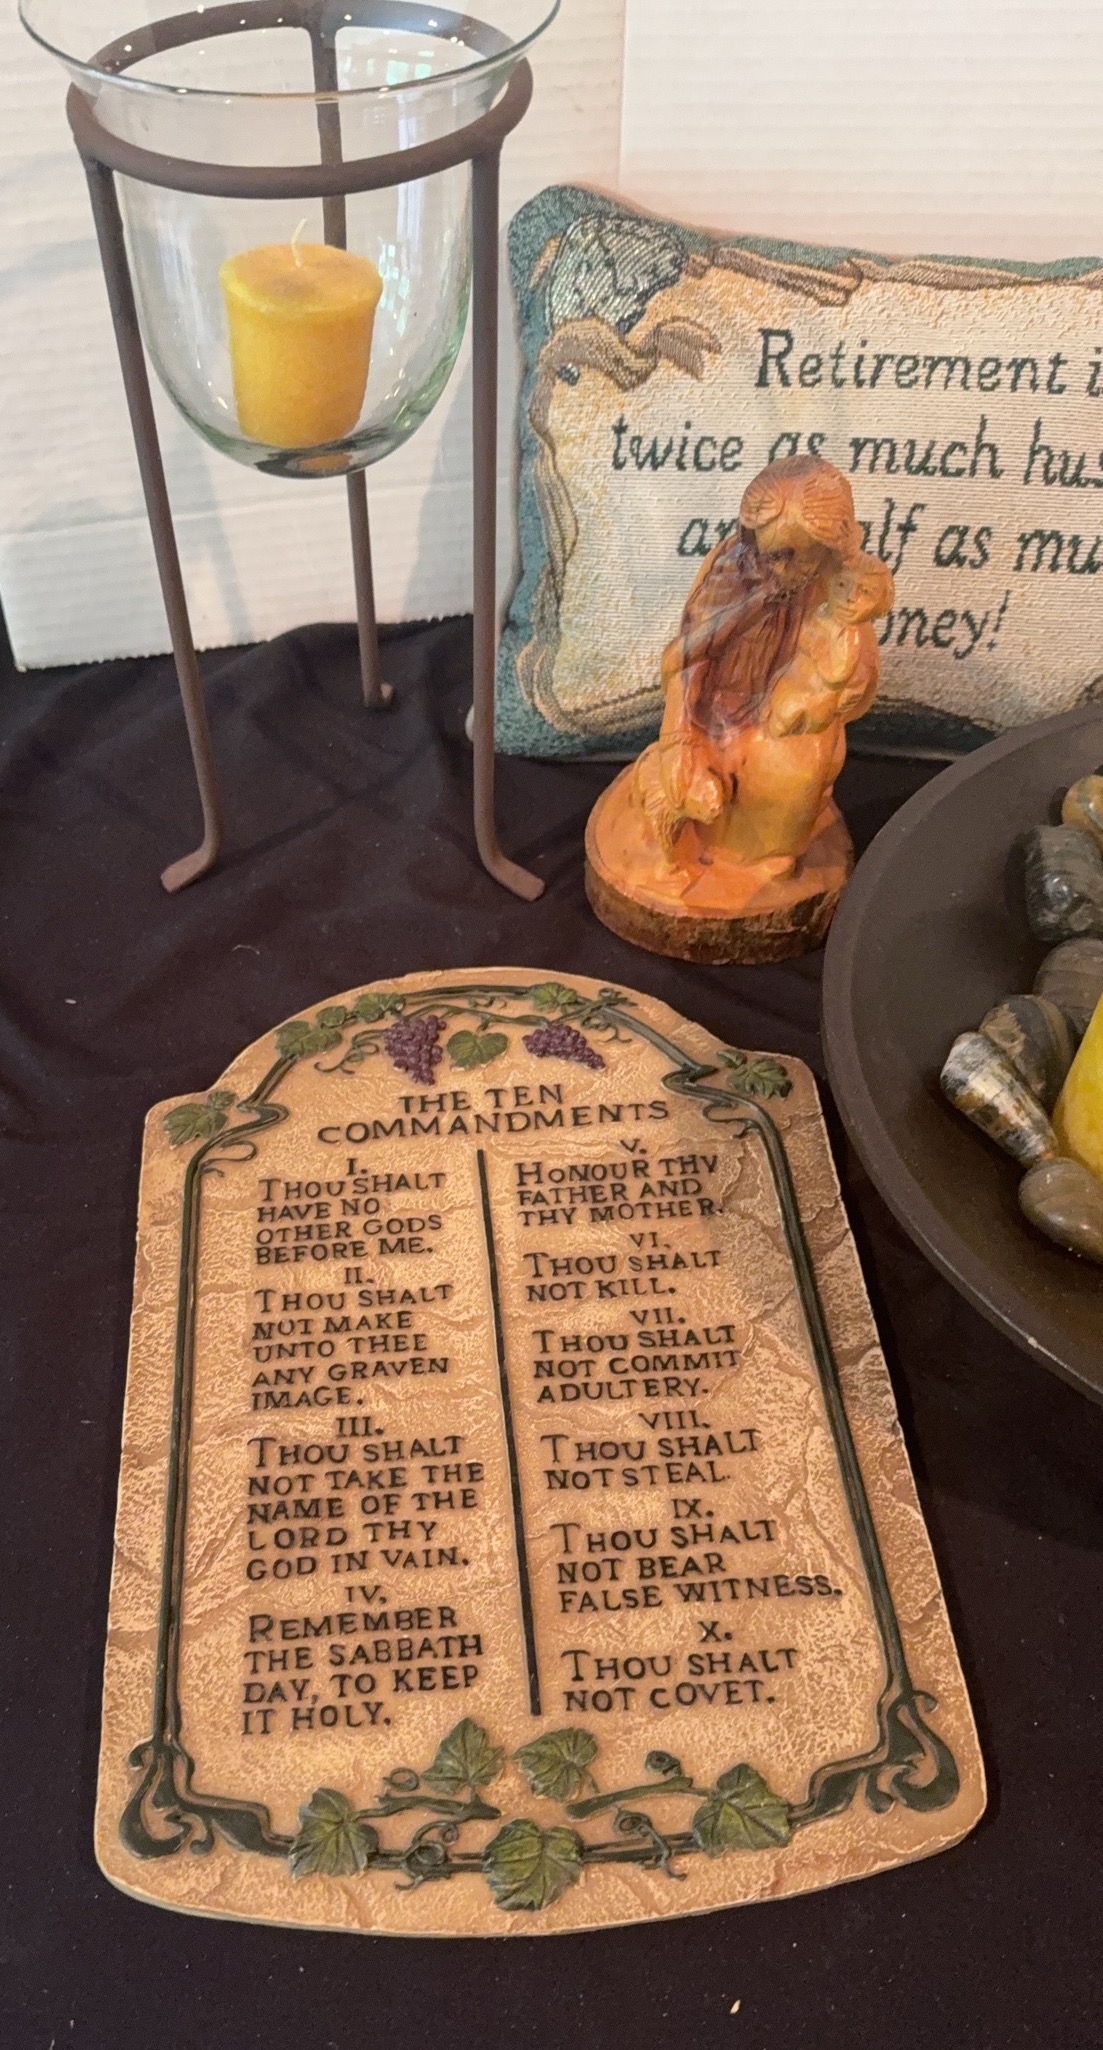 Retirement i
twice as much hus
an alf as mu
oney!
THE TEN
COMMANDMENTS
I.
THOU SHALT
HAVE NO
OTHER GODS
BEFORE ME.
II.
THOU SHALT
NOT MAKE
UNTO THEE
ANY GRAVEN
IMAGE.
III.
THOU SHALT
NOT TAKE THE
NAME OF THE
LORD THY
GOD IN VAIN.
IV.
REMEMBER
THE SABBATH
DAY, TO KEEP
IT HOLY.
V.
HONOUR THY
FATHER AND
THY MOTHER.
VI.
THOU SHALT
NOT KILL.
VII.
THOU SHALT
NOT COMMIT
ADULTERY.
VIII.
THOU SHALT
NOT STEAL.
IX.
THOU SHALT
NOT BEAR
FALSE WITNESS.
X.
THOU SHALT
NOT COVET.